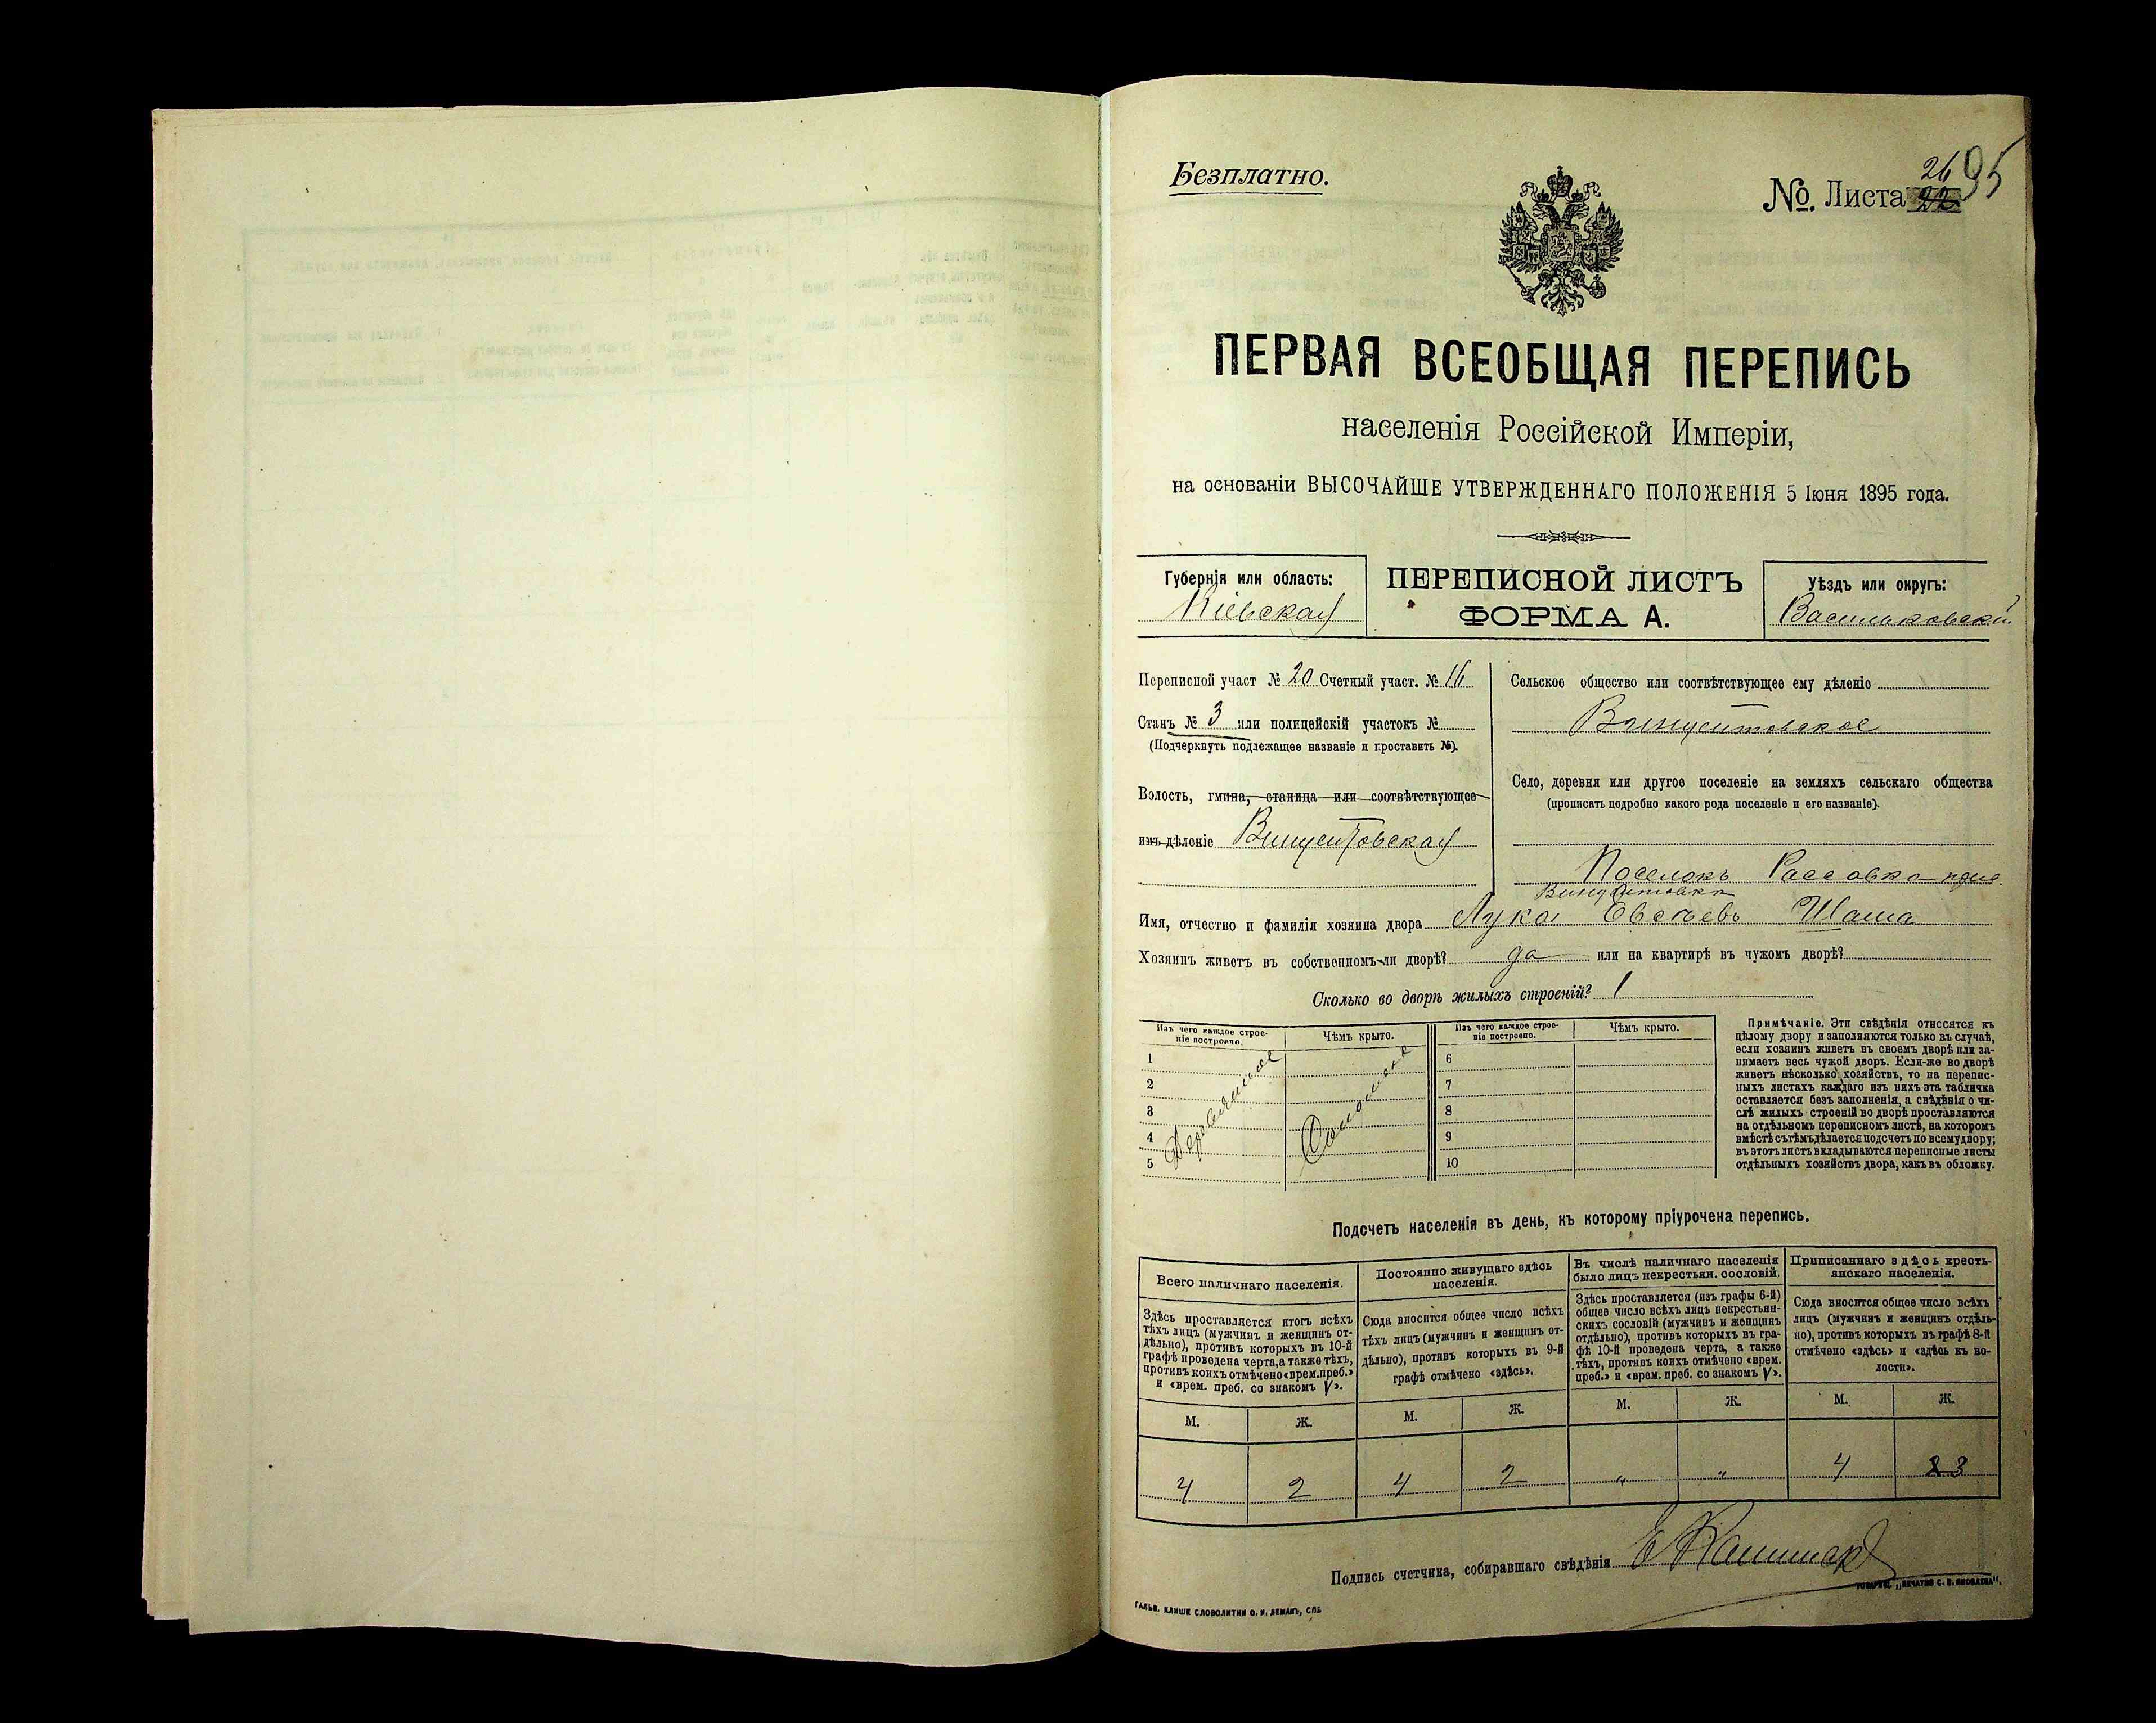 Безплатно.
№. Листа 22 26 95
ПЕРВАЯ ВСЕОБЩАЯ ПЕРЕПИСЬ
населенія Россійской Имперіи,
на основаніи ВЫСОЧАЙШЕ УТВЕРЖДЕННАГО ПОЛОЖЕНІЯ 5 Іюня 1895 года.
Губернія или область:
Кіевская
ПЕРЕПИСНОЙ ЛИСТЪ
ФОРМА А.
Уѣздъ или округъ:
Васильковскій
Переписной участ № 20 Счетный участ. № 16
Станъ № 3 или полицейскій участокъ №
(Подчеркнуть подлежащее названіе и проставить №).
Волость, гмина, станица или соотвѣтствующее
имъ дѣленіе Винцентовская
Сельское общество или соотвѣтствующее ему дѣленіе
Винцентовское
Село, деревня или другое поселеніе на земляхъ сельскаго общества
(прописать подробно какого рода поселеніе и его названіе).
Поселокъ Рассовка
Имя, отчество и фамилія хозяина двора Лука Евсѣевъ Шаша
Хозяинъ живетъ въ собственномъ-ли дворѣ? да или на квартирѣ въ чужомъ дворѣ?
Сколько во дворѣ жилыхъ строеній? 1
Изъ чего каждое строе-
ніе построено.
Чѣмъ крыто.
Изъ чего каждое строе-
ніе построено.
Чѣмъ крыто.
1 6
2 7
3 8
4 9
5 10
Деревянное
Соломою
Примѣчаніе. Эти свѣдѣнія относятся къ
цѣлому двору и заполняются только въ случаѣ,
если хозяинъ живетъ въ своемъ дворѣ или за-
нимаетъ весь чужой дворъ. Если-же во дворѣ
живетъ нѣсколько хозяйствъ, то на перепис-
ныхъ листахъ каждаго изъ нихъ эта табличка
оставляется безъ заполненія, а свѣдѣнія о чи-
слѣ жилыхъ строеній во дворѣ проставляются
на отдѣльномъ переписномъ листѣ, на которомъ
вмѣстѣ съ тѣмъ дѣлается подсчетъ по всему двору;
въ этотъ листъ вкладываются переписные листы
отдѣльныхъ хозяйствъ двора, какъ въ обложку.
Подсчетъ населенія въ день, къ которому пріурочена перепись.
Всего наличнаго населенія.
Здѣсь проставляется итогъ всѣхъ
тѣхъ лицъ (мужчинъ и женщинъ от-
дѣльно), противъ которыхъ въ 10-й
графѣ проведена черта, а также тѣхъ,
противъ коихъ отмѣчено «врем. преб.»
и «врем. преб. со знакомъ V».
Постоянно живущаго здѣсь
населенія.
Сюда вносится общее число всѣхъ
тѣхъ лицъ (мужчинъ и женщинъ от-
дѣльно), противъ которыхъ въ 9-й
графѣ отмѣчено «здѣсь».
Въ числѣ наличнаго населенія
было лицъ некрестьян. сословій.
Здѣсь проставляется (изъ графы 6-й)
общее число всѣхъ лицъ некрестьян-
скихъ сословій (мужчинъ и женщинъ
отдѣльно), противъ которыхъ въ гра-
фѣ 10-й проведена черта, а также
тѣхъ, противъ коихъ отмѣчено «врем.
преб.» и «врем. преб. со знакомъ V».
Приписаннаго здѣсь кресть-
янскаго населенія.
Сюда вносится общее число всѣхъ
лицъ (мужчинъ и женщинъ отдѣль-
но), противъ которыхъ въ графѣ 8-й
отмѣчено «здѣсь» и «здѣсь къ во-
лости».
М. Ж. М. Ж. М. Ж. М. Ж.
4 2 4 2 „ „ 4 2 3
Подпись счетчика, собиравшаго свѣдѣнія
ГАЛЬВ. КЛИШЕ СЛОВОЛИТНИ О. И. ЛЕМАНЪ, СПБ
ТОВАРИЩ. „ПЕЧАТНЯ С. П. ЯКОВЛЕВА".